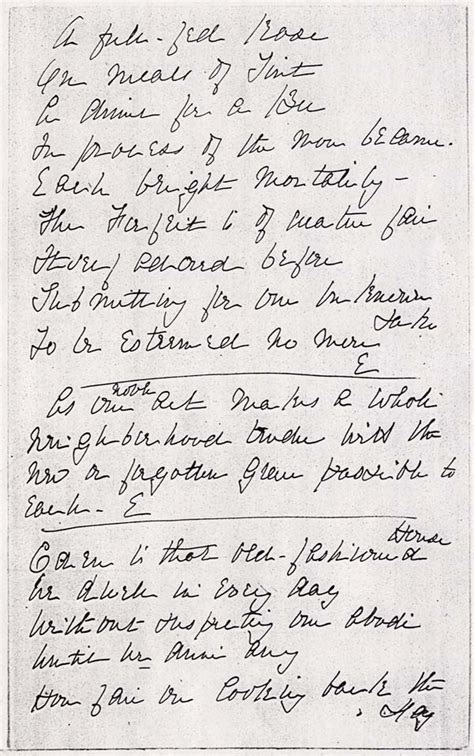 A full-fed Rose
On meals of Tint
A dinner for a Bee
In process of the Noon became.
Each bright Mortality –
The Forfeit is of creature fair
Itself adored before
Submitting for our unknown
Sake
To be Esteemed no more
E
As one noble act makes a whole
neighborhood tender with the
new or forgotten Grace possible to
Each – E
Eden is that old-fashioned House
We dwell in Every day
Without suspecting our abode
Until we drive away
How fair on looking back the
Day